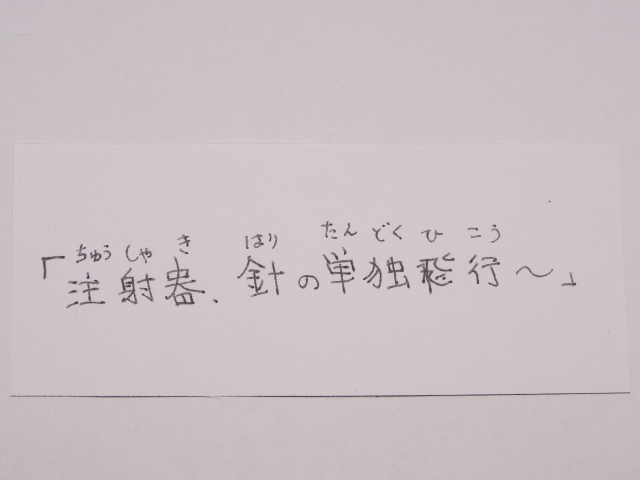 ちゅうしゃき はり たんどくひこう
「注射器、針の単独飛行〜」